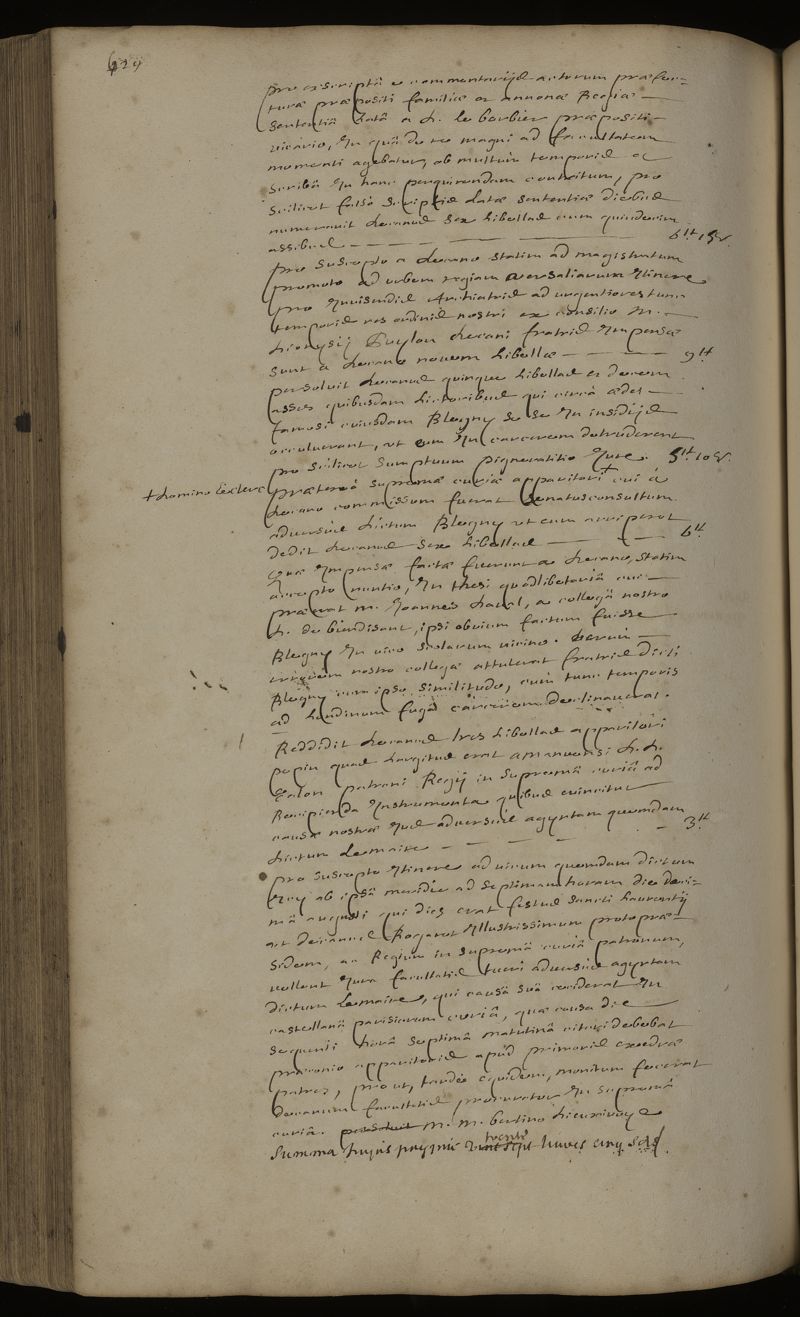 629
pro exscriptâ e commentarijs actorum præfec=
turæ præpositi familiæ et annonæ Regiæ —
sententiâ latâ a d. le barbier præpositi —
vicario, In quâ de re magni ad facultatem
momenti agebatur, ob multum temporis a
scribâ In hanc perquirendam contritum, pro
scilicet falso scriptis latæ sententiæ diebus
numeravit decanus sex libellas cum quindecim
assibus — — — — — 6tt 15s.
pro suscepto a decano statim ad magistratum
promoto ad urbem regiam versaliarum Itinere
pro Invisendis Archiatris ad urgentiores tunc
temporis res ordinis nostri ex consilio M. —
dionysij Puylon decani fratris Impensæ
sunt a decano novem libellæ — — — — 9tt
persolvit decanus quinque libellas et decem
asses quibusdam lictoribus qui circà ædes —
famosi cuiusdam Blegny se se In insidijs
occuluerant, ut eum In carcerem detruderent
pro scilicet sumptuum pigneratitio Jure. 5tt 10s.
+ domino leclerc præterea supremæ curiæ apparitori + cui à
decano commissum fuerat senatusconsultum
adversus dictum Blegny ut eum arriperet
dedit decanus sex libellas — — — 6tt
Quæ Impensæ factæ fuerunt a decano, statim
accepto nuntio, In thesi quodlibetariâ cui —
præerat M. Joannes davel, a collegâ nostro
d. de bindisant, ipsi obvium factum fuisse
Blegny In vico scolarum vicino. Verum —
errorem nostro collegæ attulerat fratris dicti
Blegny cum ipso similitudo, cum tunc temporis
ad londinum fugâ carcerem declinaverat.
Reddidit decanus tres libellas apparitori
pepin quas largitus erat amanuensi d. d.
Talon patroni Regij in supremâ curiâ ad
Recipienda Instrumenta quibus evincitur
causæ nostræ Jus adversus agyrtam quemdam
dictum lemaire — — — — 3tt
pro suscepto Itinere ad vicum quemdam dictum
Issy ab ipsâ meridie ad septimam horam die deci=
mâ augusti qui dies erat festus sancti laurentij
ut decanus Rogaret Illustrissimum protopræ=
sidem, ac Regium in supremâ curiâ patronum,
vellent Jura facultatis tueri adversus agyrtam
dictum lemaire, qui causâ suâ ceciderat In
castellanâ parisiorum curiâ, quæ causa die
sequenti horâ septimâ matutinâ citari debebat
præconio apparitoris apud primoris exedræ
patres, prout, tardè equidem, monitum fecerat
decanum facultatis procurator In supremâ
curiâ. persolvit M. M. bertino dieuxivoye
Summa hujus paginæ trente sept livres cinq sols.